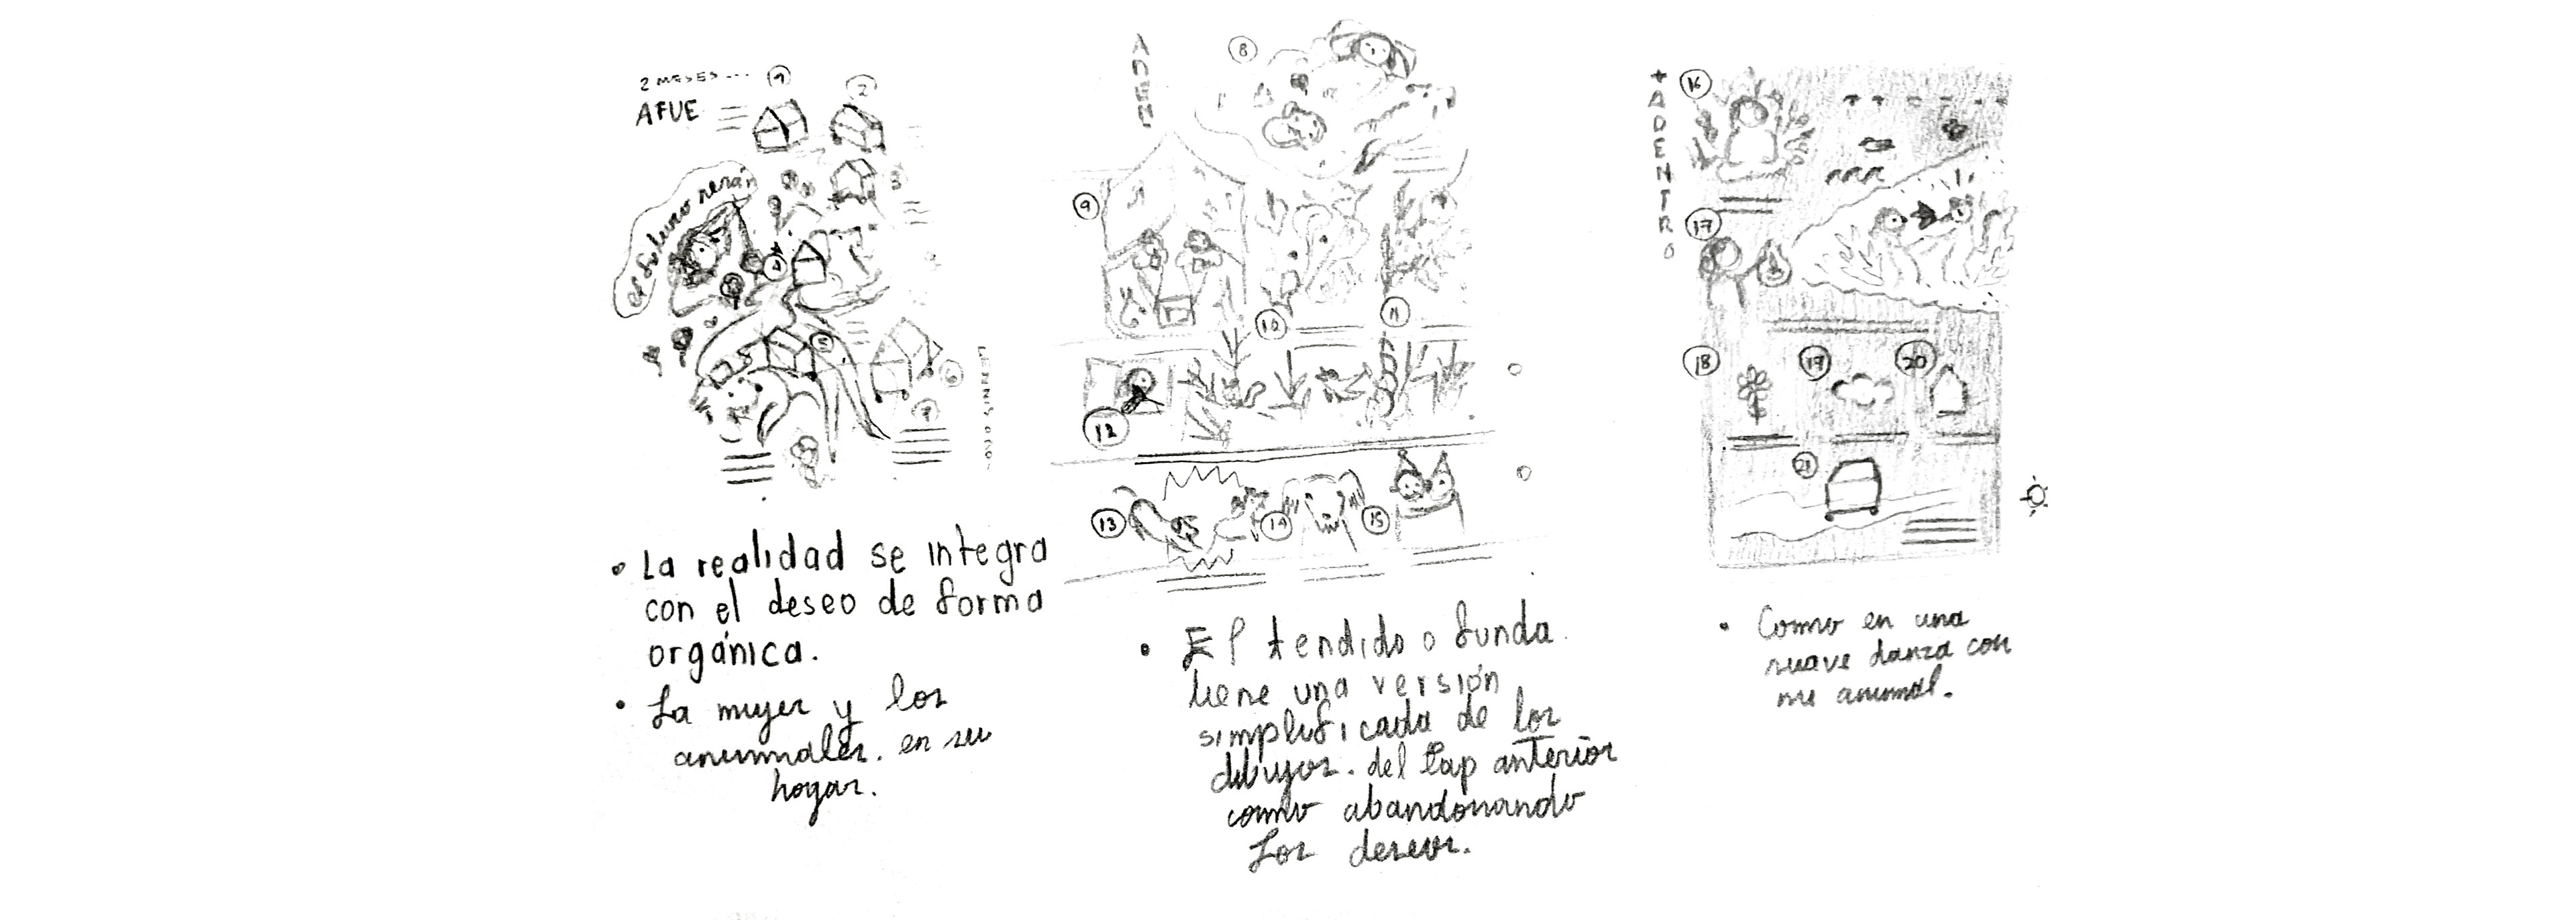 2 MESES...
AFUE
1
2
3
4
5
6
7
8
9
10
11
12
13
14
15
ADENTRO
+
16
17
18
19
20
21
• La realidad se integra
con el deseo de forma
orgánica.
• La mujer y los
animales. en su
hogar.
• El tendido o funda
tiene una versión
simplificada de los
dibujos. del cap anterior
como abandonando
los deseos.
• Como en una
suave danza con
mi animal.